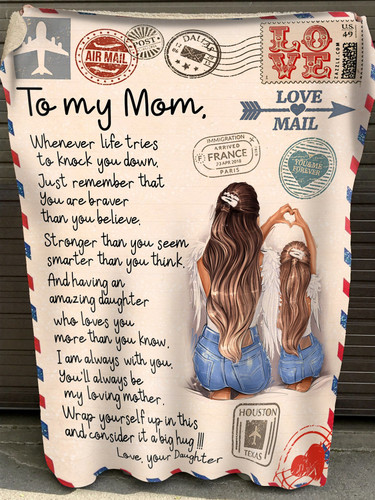 AIR MAIL
POST
DALLAS
US
49
LOVE
To my Mom,
LOVE
MAIL
Whenever life tries
to knock you down,
Just remember that
You are braver
than you believe,
Stronger than you seem
smarter than you think.
And having an
amazing daughter
who loves you
more than you know,
I am always with you.
You'll always be
my loving mother.
Wrap yourself up in this
and consider it a big hug !!!
Love, your Daughter
IMMIGRATION
ARRIVED
FRANCE
23 APR 2018
PARIS
YOU & ME
FOREVER
HOUSTON
TEXAS